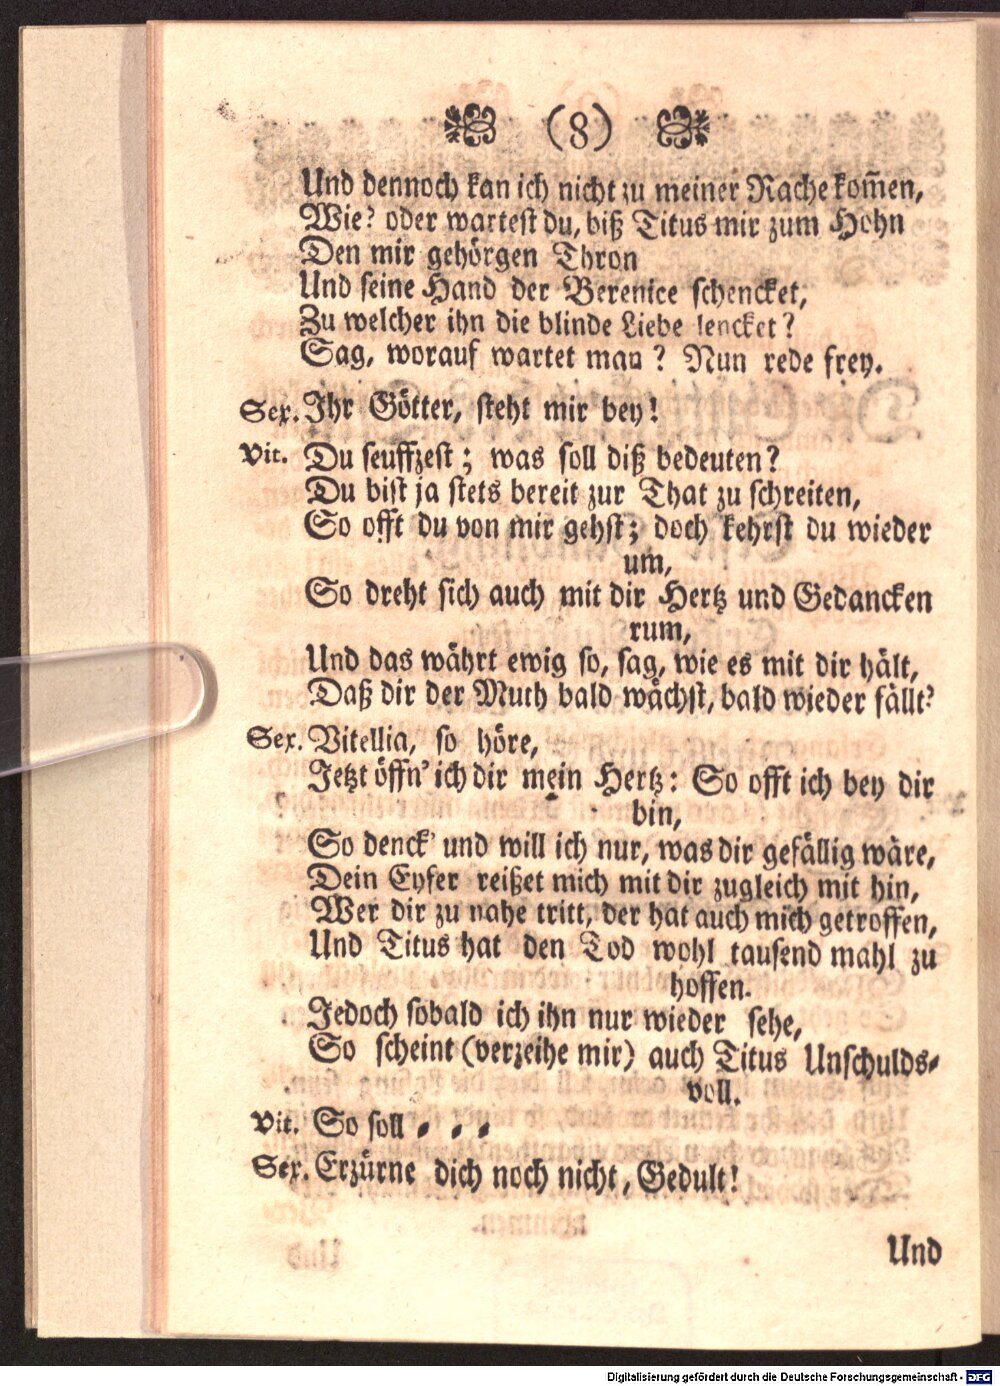 (8)
Und dennoch kan ich nicht zu meiner Rache kom̃en,
Wie? oder wartest du, biß Titus mir zum Hohn
Den mir gehörgen Thron
Und seine Hand der Berenice schencket,
Zu welcher ihn die blinde Liebe lencket?
Sag, worauf wartet man? Nun rede frey.
Sex. Ihr Götter, steht mir bey!
Vit. Du seuffzest; was soll diß bedeuten?
Du bist ja stets bereit zur That zu schreiten,
So offt du von mir gehst; doch kehrst du wieder
um,
So dreht sich auch mit dir Hertz und Gedancken
rum,
Und das währt ewig so, sag, wie es mit dir hält,
Daß dir der Muth bald wächst, bald wieder fällt?
Sex. Vitellia, so höre,
Jetzt öffn' ich dir mein Hertz: So offt ich bey dir
bin,
So denck' und will ich nur, was dir gefällig wäre,
Dein Eyfer reißet mich mit dir zugleich mit hin,
Wer dir zu nahe tritt, der hat auch mich getroffen,
Und Titus hat den Tod wohl tausend mahl zu
hoffen.
Jedoch sobald ich ihn nur wieder sehe,
So scheint (verzeihe mir) auch Titus Unschulds-
voll.
Vit. So soll - - -
Sex. Erzürne dich noch nicht, Gedult!
Und
Digitalisierung gefördert durch die Deutsche Forschungsgemeinschaft - DFG